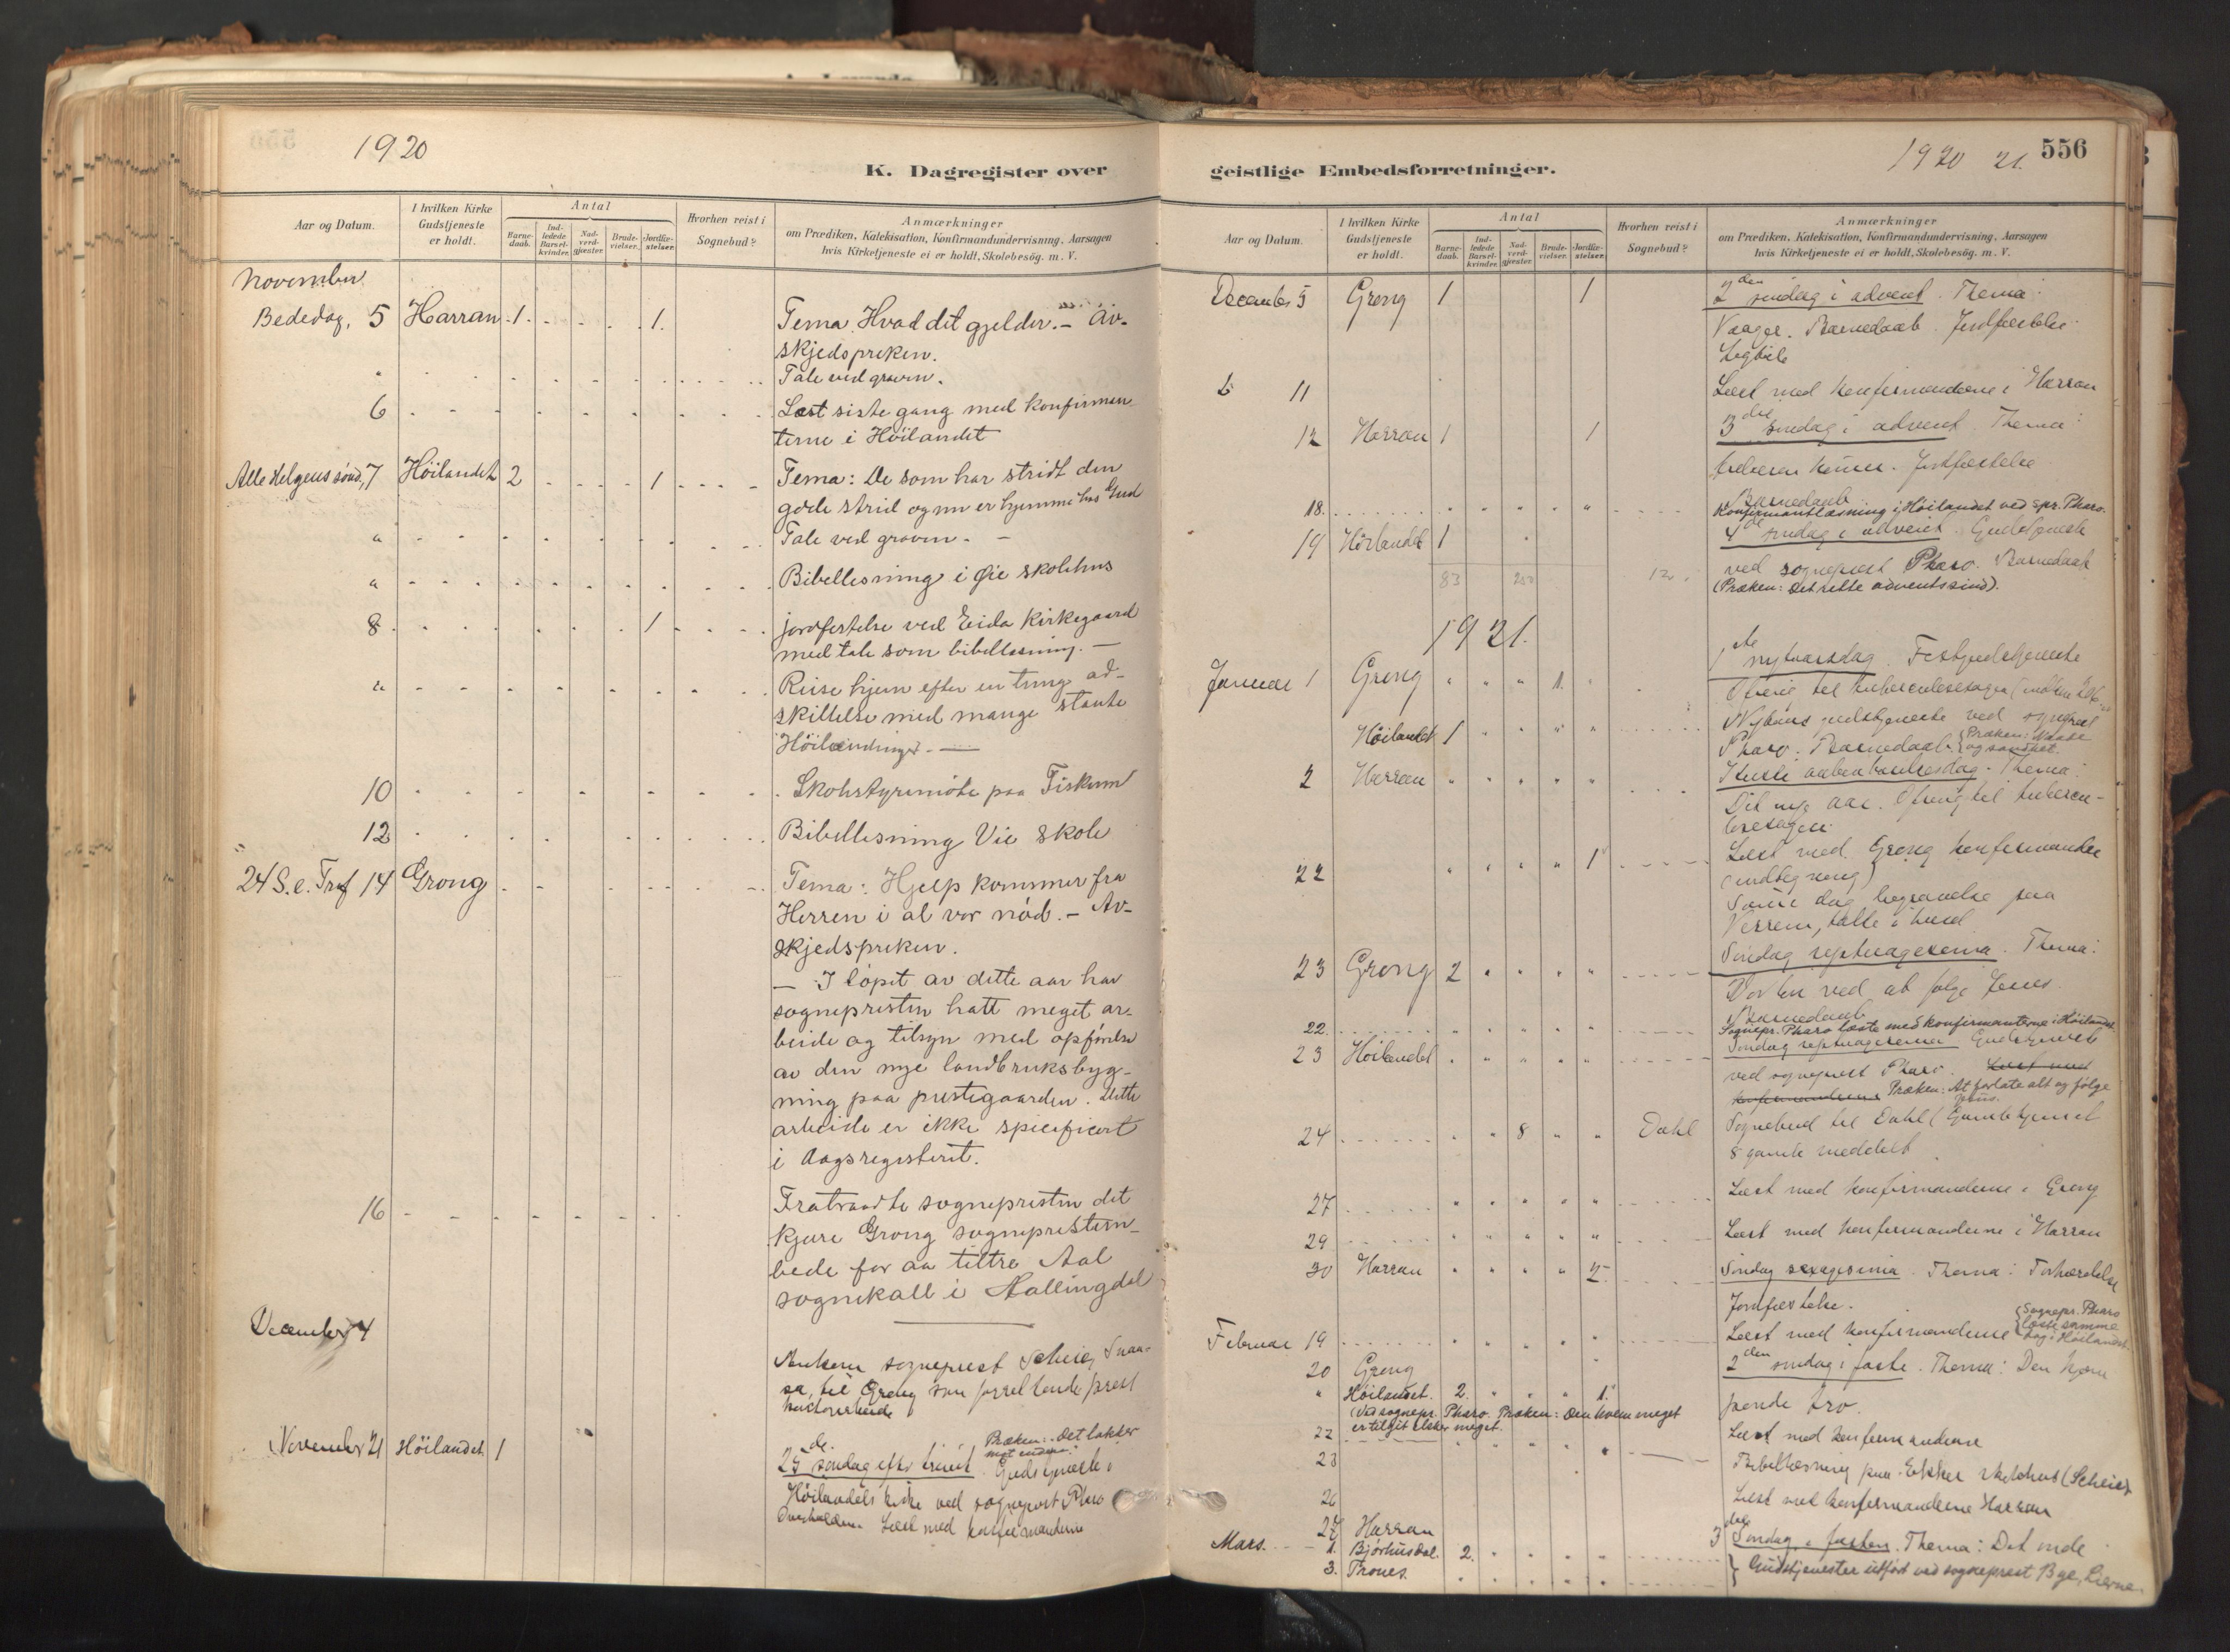 1920
K. Dagregister over
Aar og Datum.
I hvilken Kirke Gudstjeneste er holdt.
Antal
Barne-daab.
Ind-ledede Barsel-kvinder.
Nad-verd-gjester.
Brude-vielser.
Jordfæ-stelser.
Hvorhen reist i Sognebud?
Anmærkninger
om Prædiken, Katekisation, Konfirmandundervisning, Aarsagen
hvis Kirketjeneste ei er holdt, Skolebesög. m. V.
November
Bededag, 5 Harran 1 1. Tema. Hvad det gjelder. - Av-
skjedspreken.
" Tale ved graven.
6 Læst siste gang med konfirman-
terne i Höilandet
Alle Helgens sönd, 7 Höilandet 2 1 Tema: De som har stridt den
gode strid og nu er hjemme hos Gud
" Tale ved graven. -
" Bibellesning i Øie skolehus
8 1 jordfestelse ved Eida Kirkegaard
med tale som bibellesning. -
" Reise hjem efter en tung ad-
skillelse med mange staute
Höilændinger. -
10 Skolestyremöte paa Fiskum
12 Bibellesning Vie skole
24 S. e. Tref 14 Grong Tema: Hjelp kommer fra
Herren i al vor nöd. - Av-
skjedspreken.
- I löpet av dette aar har
sognepresten hatt meget ar-
beide og tilsyn med opförelse
av den nye landbruksbyg-
ning paa prestegaarden. Dette
arbeide er ikke specificert
i dagsregisteret.
16 Fratraadte sognepresten det
kjære Grong sogneprestem-
bede for aa tiltre Aal
sognekall i Hallingdal
December 4
Ankom sogneprest Scheie, Snaa-
sa, til Grong som forrettende prest
November 21 Höilandet 1 25de söndag efter trinit. Præken: Det lakker mot enden.
Gudstjeneste i
Höilandets kirke ved sogneprest Pharo
Overhalden. Læst med konfirmanderne
geistlige Embedsforretninger.
1920 21.
556
Aar og Datum.
I hvilken Kirke Gudstjeneste er holdt.
Antal
Barne-daab.
Ind-ledede Barsel-kvinder.
Nad-verd-gjester.
Brude-vielser.
Jordfæ-stelser.
Hvorhen reist i Sognebud?
Anmærkninger
om Prædiken, Katekisation, Konfirmandundervisning, Aarsagen
hvis Kirketjeneste ei er holdt, Skolebesög. m. V.
December 5 Grong 1 1 2den söndag i advent. Thema:
Vaager. Barnedaab. Jordfæstelse
11 Læst med konfirmanderne i Harran
12 Harran 1 1 3die söndag i advent. Thema:
Jordfæstelse
Barnedaab
18. Konfirmantlæsning i Höilandet ved spr. Pharo.
19 Höilandet 1 4de söndag i advent. Gudstjeneste
ved sogneprest Pharo. Barnedaab
83 12
(Præken: Det rette adventssind).
1921.
Januar 1 Grong " " " 1. 1ste nytaarsdag. Festgudstjeneste
Höilandet 1 Nytaars gudstjeneste ved sogneprest
Pharo. Barnedaab. {Præken: Naade og sandhet.
2 Harran Thema:
Det nye aar. Ofring til tubercu-
losesagen.
22 1 Læst med Grong konfirmander
(indtegning)
Samme dag begravelse paa
23 Grong 2 Söndag septuagesima. Thema:
Vor lön ved at fölge Jesus.
Barnedaab
22. Sognepr. Pharo læste med konfirmanterne i Höilandet.
23 Höilandet Söndag septuagesima Gudstjeneste
ved sogneprest Pharo. Læst med
konfirmanderne Præken: At forlate alt og fölge
Jesus.
24 8 Dahl Sognebud til Dahl
8 gamle meddelt
27 Læst med konfirmanderne i Grong
29 Læst med konfirmanderne i Harran
30 Harran 2 Söndag sexagesima. Thema: Forhærdelse
Jordfæstelse.
Februar 19 Læst med konfirmanderne {Sognepr. Pharo
læste samme
dag i Höilandet
20 Grong 2den söndag i faste. Thema: Den kjæm
" Höilandet. 2. " " " 1. pende tro.
(Ved sognepr. Pharo. Præken: Den hvem meget
er tilgit elsker meget.
22 Læst med konfirmanderne
23 Bibellæsning paa Ekker skolehus (Scheie)
26 Læst med konfirmanderne Harran
27 Harran 3die Söndag i fasten. Thema: Det onde
Mars. 1. Bjørhusdal. 2. } Gudstjenester utført ved sogneprest Bye, Lierne
3. Trones.